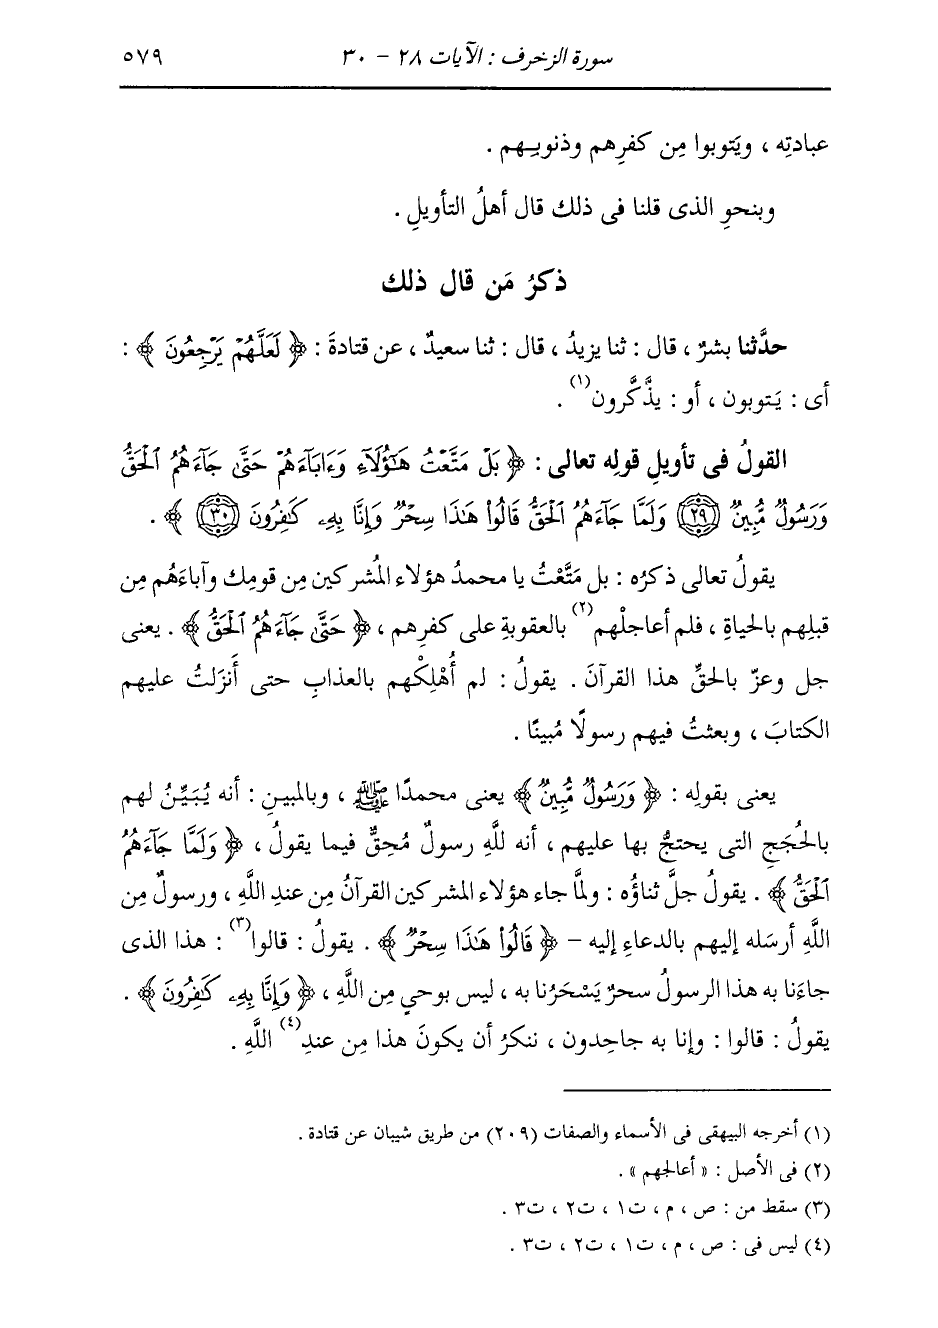 سورة الزخرف : الآيات ٢٨ - ٣٠ ٥٧٩
عبادتِه ، ويَتوبوا مِن كفرِهم وذنوبِـهم .
وبنحوِ الذى قلنا فى ذلك قال أهلُ التأويلِ .
ذكرُ مَن قال ذلك
حدَّثنا بشرٌ ، قال : ثنا يزيدُ ، قال : ثنا سعيدٌ ، عن قتادةَ : ﴿ لَعَلَّهُمْ يَرْجِعُونَ ﴾ :
أى : يَتوبون ، أو : يذَّكَّرون(١) .
القولُ فى تأويلِ قولِه تعالى : ﴿ بَلْ مَتَّعْتُ هَـٰٓؤُلَآءِ وَءَابَآءَهُمْ حَتَّىٰ جَآءَهُمُ ٱلْحَقُّ
وَرَسُولٌ مُّبِينٌ ﴿٢٩﴾ وَلَمَّا جَآءَهُمُ ٱلْحَقُّ قَالُوا۟ هَـٰذَا سِحْرٌ وَإِنَّا بِهِۦ كَـٰفِرُونَ ﴿٣٠﴾ ﴾ .
يقولُ تعالى ذكرُه : بل مَتَّعْتُ يا محمدُ هؤلاء المُشركين مِن قومِك وآباءَهُم مِن
قبلِهم بالحياةِ ، فلم أعاجلْهم(٢) بالعقوبةِ على كفرِهم ، ﴿ حَتَّىٰ جَآءَهُمُ ٱلْحَقُّ ﴾ . يعنى
جل وعزّ بالحقِّ هذا القرآنَ . يقولُ : لم أُهْلِكْهم بالعذابِ حتى أَنزَلتُ عليهم
الكتابَ ، وبعثتُ فيهم رسولًا مُبينًا .
يعنى بقولِه : ﴿ وَرَسُولٌ مُّبِينٌ ﴾ يعنى محمدًا ﷺ ، وبالمبينِ : أنه يُبَيِّنُ لهم
بالحُجَجِ التى يحتجُّ بها عليهم ، أنه للَّهِ رسولٌ مُحِقٌّ فيما يقولُ ، ﴿ وَلَمَّا جَآءَهُمُ
ٱلْحَقُّ ﴾ . يقولُ جلَّ ثناؤُه : ولمَّا جاء هؤلاء المشركين القرآنُ مِن عندِ اللَّهِ ، ورسولٌ مِن
اللَّهِ أرسَله إليهم بالدعاءِ إليه - ﴿ قَالُوا۟ هَـٰذَا سِحْرٌ ﴾ . يقولُ : قالوا(٣) : هذا الذى
جاءَنا به هذا الرسولُ سحرٌ يَسْحَرُنا به ، ليس بوحيٍ مِن اللَّهِ ، ﴿ وَإِنَّا بِهِۦ كَـٰفِرُونَ ﴾ .
يقولُ : قالوا : وإنا به جاحِدون ، ننكرُ أن يكونَ هذا مِن عندِ(٤) اللَّهِ .
(١) أخرجه البيهقى فى الأسماء والصفات (٢٠٩) من طريق شيبان عن قتادة .
(٢) فى الأصل : « أعالجهم » .
(٣) سقط من : ص ، م ، ت١ ، ت٢ ، ت٣ .
(٤) ليس فى : ص ، م ، ت١ ، ت٢ ، ت٣ .